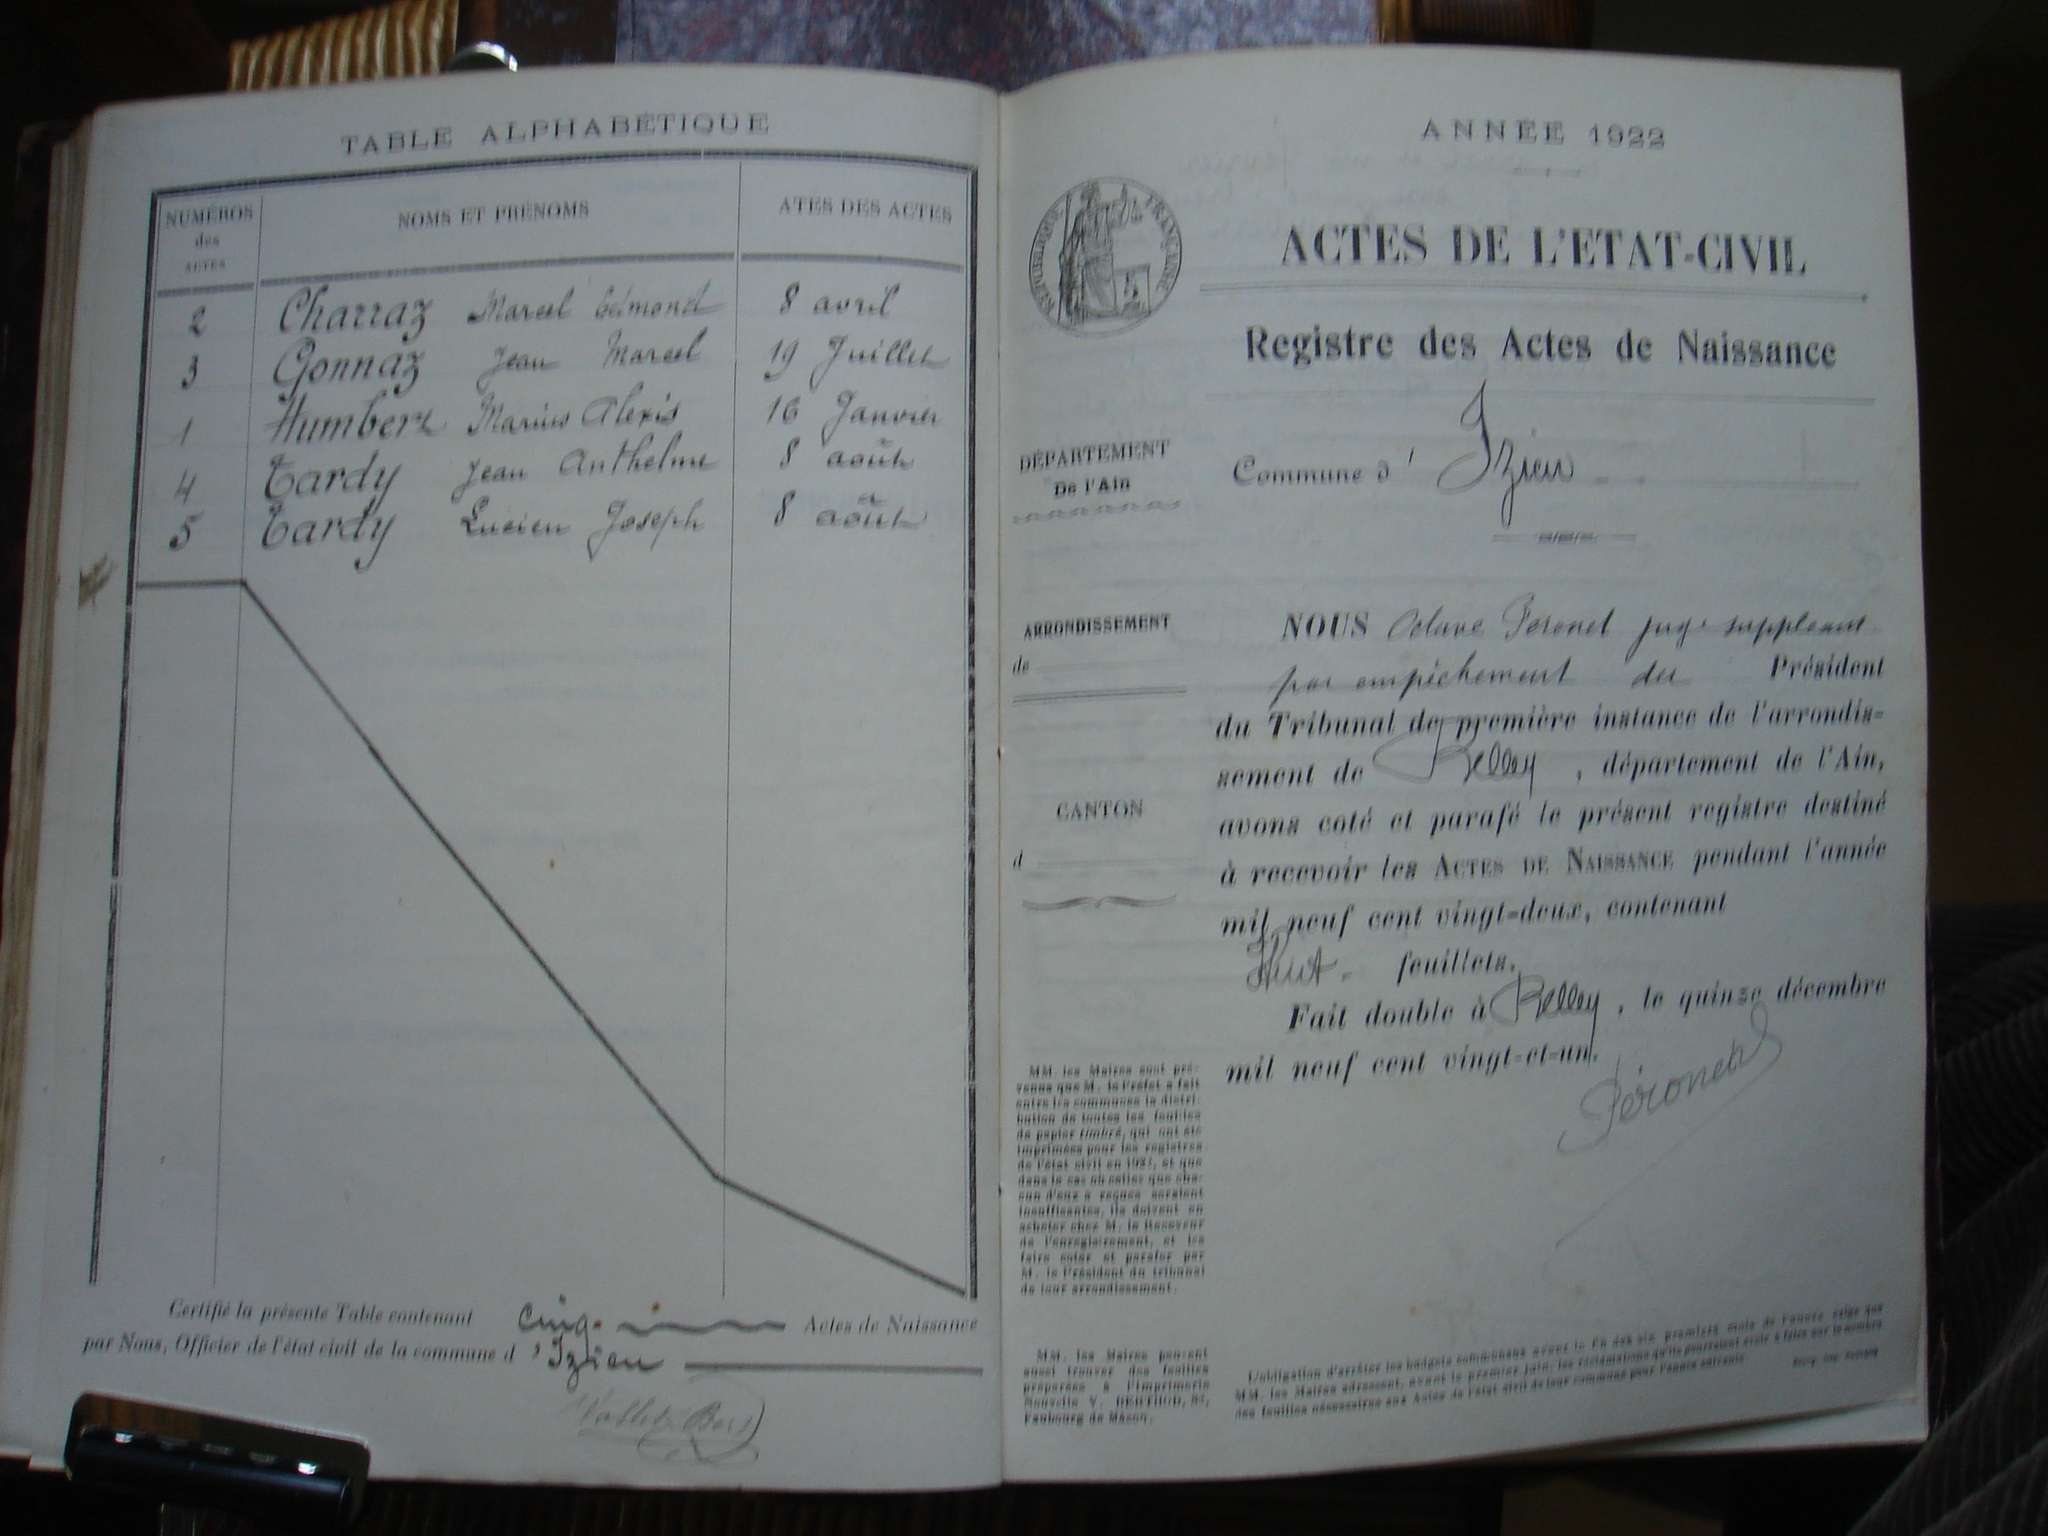 TABLE ALPHABÉTIQUE
NUMÉROS des ACTES NOMS ET PRÉNOMS ATES DES ACTES
2 Charraz Marcel Edmond 8 avril
3 Gonnaz Jean Marcel 19 Juillet
1 Humbert Marius Alexis 16 Janvier
4 Tardy Jean Anthelme 8 août
5 Tardy Lucien Joseph 8 août
Certifié la présente Table contenant cinq Actes de Naissance
par Nous, Officier de l'état civil de la commune d'Izieu
ANNÉE 1922
RÉPUBLIQUE FRANÇAISE
ACTES DE L'ETAT-CIVIL
Registre des Actes de Naissance
DÉPARTEMENT
De l'Ain
Commune d' Izieu
ARRONDISSEMENT
de
CANTON
d
NOUS Octave Peronet juge suppléant
par empêchement du Président
du Tribunal de première instance de l'arrondis-
sement de Belley, département de l'Ain,
avons coté et parafé le présent registre destiné
à recevoir les ACTES DE NAISSANCE pendant l'année
mil neuf cent vingt-deux, contenant
Huit feuillets.
Fait double à Belley, le quinze décembre
mil neuf cent vingt-et-un.
Péronet
MM. les Maires sont pré-
venus que M. le Préfet a fait
entre les communes la distri-
bution de toutes les feuilles
de papier timbré, qui ont été
imprimées pour les registres
de l'état civil en 1922, et que
dans le cas où celles que cha-
cun d'eux a reçues seraient
insuffisantes, ils doivent en
acheter chez M. le Receveur
de l'enregistrement, et les
faire coter et parafer par
M. le Président du tribunal
de leur arrondissement.
MM. les Maires peuvent
aussi trouver des feuilles
préparées à l'Imprimerie
Nouvelle V. BERTHOD, 87,
Faubourg de Mâcon.
L'obligation d'arrêter les budgets communaux avant la fin des six premiers mois de l'année exige que
MM. les Maires adressent, avant le premier juin, les réclamations qu'ils pourraient avoir à faire sur le nombre
des feuilles nécessaires aux Actes de l'état civil de leur commune pour l'année suivante.